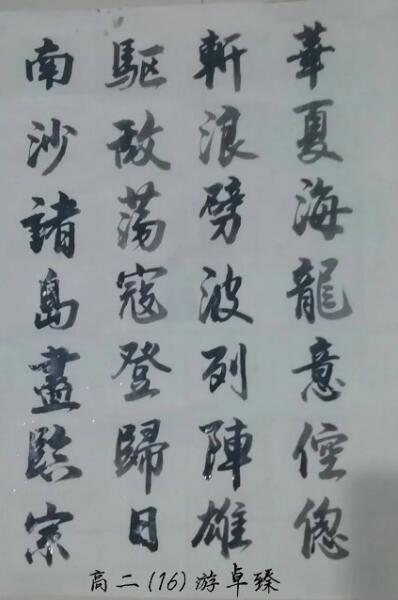 華夏海龍意倥偬
斬浪劈波列陣雄
驅敌蕩寇登歸日
南沙諸島盡臨宗
高二(16)游卓臻